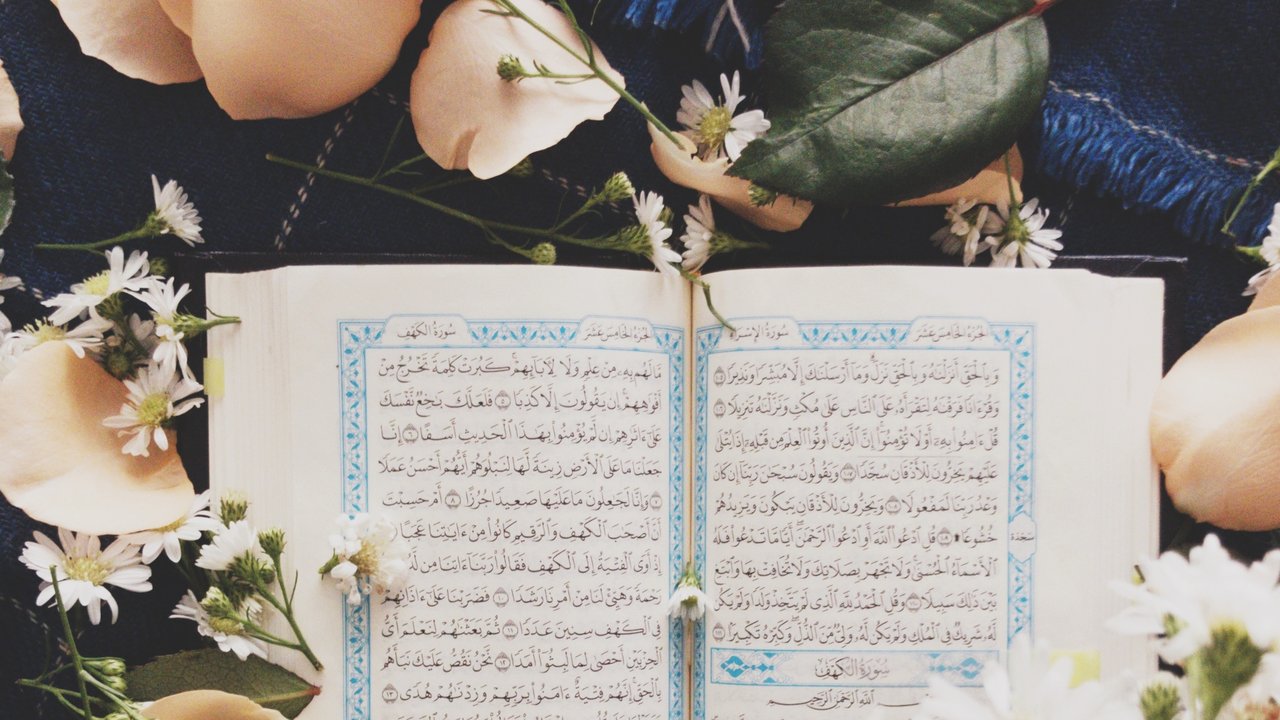 الجُزْءُ الخَامِسَ عَشَرَ
سُورَةُ الإِسْرَاءِ
وَبِٱلْحَقِّ أَنزَلْنَٰهُ وَبِٱلْحَقِّ نَزَلَ ۗ وَمَآ أَرْسَلْنَٰكَ إِلَّا مُبَشِّرًا وَنَذِيرًا ١٠٥
وَقُرْءَانًا فَرَقْنَٰهُ لِتَقْرَأَهُۥ عَلَى ٱلنَّاسِ عَلَىٰ مُكْثٍ وَنَزَّلْنَٰهُ تَنزِيلًا ١٠٦
قُلْ ءَامِنُوا۟ بِهِۦٓ أَوْ لَا تُؤْمِنُوٓا۟ ۚ إِنَّ ٱلَّذِينَ أُوتُوا۟ ٱلْعِلْمَ مِن قَبْلِهِۦٓ إِذَا يُتْلَىٰ
عَلَيْهِمْ يَخِرُّونَ لِلْأَذْقَانِ سُجَّدًا ١٠٧ وَيَقُولُونَ سُبْحَٰنَ رَبِّنَآ إِن كَانَ
وَعْدُ رَبِّنَا لَمَفْعُولًا ١٠٨ وَيَخِرُّونَ لِلْأَذْقَانِ يَبْكُونَ وَيَزِيدُهُمْ
خُشُوعًا ۩ ١٠٩ قُلِ ٱدْعُوا۟ ٱللَّهَ أَوِ ٱدْعُوا۟ ٱلرَّحْمَٰنَ ۖ أَيًّا مَّا تَدْعُوا۟ فَلَهُ
سَجْدَة
ٱلْأَسْمَآءُ ٱلْحُسْنَىٰ ۚ وَلَا تَجْهَرْ بِصَلَاتِكَ وَلَا تُخَافِتْ بِهَا وَٱبْتَغِ
بَيْنَ ذَٰلِكَ سَبِيلًا ١١٠ وَقُلِ ٱلْحَمْدُ لِلَّهِ ٱلَّذِى لَمْ يَتَّخِذْ وَلَدًا وَلَمْ يَكُن
لَّهُۥ شَرِيكٌ فِى ٱلْمُلْكِ وَلَمْ يَكُن لَّهُۥ وَلِىٌّ مِّنَ ٱلذُّلِّ ۖ وَكَبِّرْهُ تَكْبِيرًۢا ١١١
سُورَةُ الكَهْفِ
بِسْمِ ٱللَّهِ ٱلرَّحْمَٰنِ ٱلرَّحِيمِ
الجُزْءُ الخَامِسَ عَشَرَ
سُورَةُ الكَهْفِ
مَّا لَهُم بِهِۦ مِنْ عِلْمٍ وَلَا لِءَابَآئِهِمْ ۚ كَبُرَتْ كَلِمَةً تَخْرُجُ مِنْ
أَفْوَٰهِهِمْ ۚ إِن يَقُولُونَ إِلَّا كَذِبًا ٥ فَلَعَلَّكَ بَٰخِعٌ نَّفْسَكَ
عَلَىٰٓ ءَاثَٰرِهِمْ إِن لَّمْ يُؤْمِنُوا۟ بِهَٰذَا ٱلْحَدِيثِ أَسَفًا ٦ إِنَّا
جَعَلْنَا مَا عَلَى ٱلْأَرْضِ زِينَةً لَّهَا لِنَبْلُوَهُمْ أَيُّهُمْ أَحْسَنُ عَمَلًا
٧ وَإِنَّا لَجَٰعِلُونَ مَا عَلَيْهَا صَعِيدًا جُرُزًا ٨ أَمْ حَسِبْتَ
أَنَّ أَصْحَٰبَ ٱلْكَهْفِ وَٱلرَّقِيمِ كَانُوا۟ مِنْ ءَايَٰتِنَا عَجَبًا
إِذْ أَوَى ٱلْفِتْيَةُ إِلَى ٱلْكَهْفِ فَقَالُوا۟ رَبَّنَآ ءَاتِنَا مِن لَّدُ
رَحْمَةً وَهَيِّئْ لَنَا مِنْ أَمْرِنَا رَشَدًا ١٠ فَضَرَبْنَا عَلَىٰٓ ءَاذَانِهِمْ
فِى ٱلْكَهْفِ سِنِينَ عَدَدًا ١١ ثُمَّ بَعَثْنَٰهُمْ لِنَعْلَمَ أَىُّ
ٱلْحِزْبَيْنِ أَحْصَىٰ لِمَا لَبِثُوٓا۟ أَمَدًا ١٢ نَّحْنُ نَقُصُّ عَلَيْكَ نَبَأَهُم
بِٱلْحَقِّ ۚ إِنَّهُمْ فِتْيَةٌ ءَامَنُوا۟ بِرَبِّهِمْ وَزِدْنَٰهُمْ هُدًى ١٣